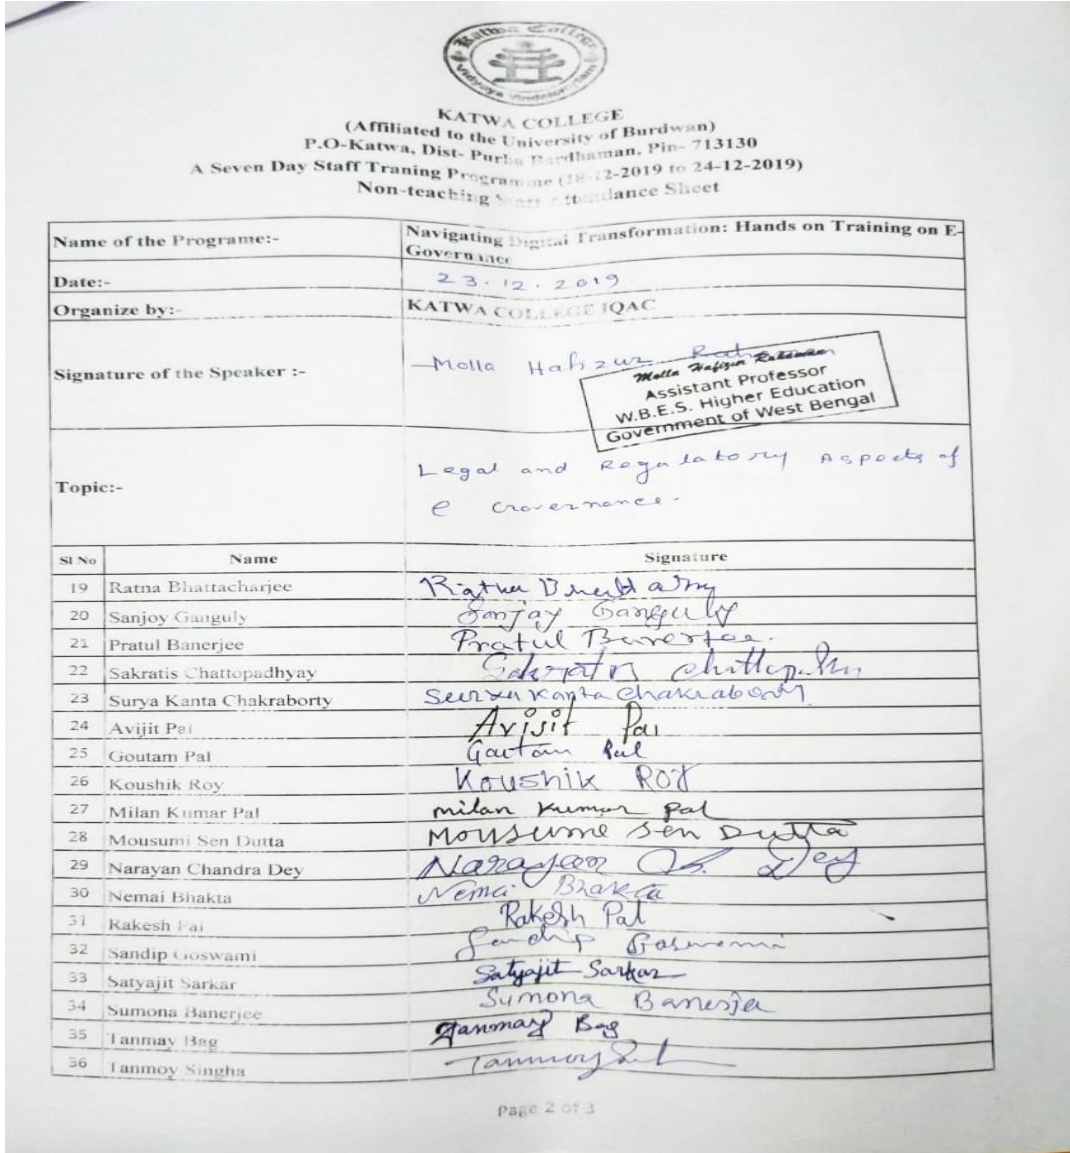 Katwa College
Vidyaya Vindatemritam
KATWA COLLEGE
(Affiliated to the University of Burdwan)
P.O-Katwa, Dist- Purba Bardhaman, Pin- 713130
A Seven Day Staff Traning Programme (18-12-2019 to 24-12-2019)
Non-teaching Staff Attendance Sheet
Name of the Programe:- Navigating Digital Transformation: Hands on Training on E-
Governance
Date:- 23.12.2019
Organize by:- KATWA COLLEGE IQAC
Signature of the Speaker :- Molla Hafizur Rahaman
Molla Hafizur Rahaman
Assistant Professor
W.B.E.S. Higher Education
Government of West Bengal
Topic:- Legal and Regulatory Aspects of
e Governance.
Sl No Name Signature
19 Ratna Bhattacharjee Ratna
20 Sanjoy Ganguly Sanjay Ganguly
21 Pratul Banerjee Pratul Banerjee.
22 Sakratis Chattopadhyay
23 Surya Kanta Chakraborty Surya Kanta Chakraborty
24 Avijit Pal Avijit Pal
25 Goutam Pal Goutam Pal
26 Koushik Roy Koushik Roy
27 Milan Kumar Pal milan Kumar pal
28 Mousumi Sen Dutta Mousume Sen Dutta
29 Narayan Chandra Dey Narayan Ch. Dey
30 Nemai Bhakta Nemai Bhakta
31 Rakesh Pal Rakesh Pal
32 Sandip Goswami Sandip Goswami
33 Satyajit Sarkar Satyajit Sarkar
34 Sumona Banerjee Sumona Banerjee
35 Tanmay Bag Tanmay Bag
36 Tanmoy Singha Tanmoy
Page 2 of 3